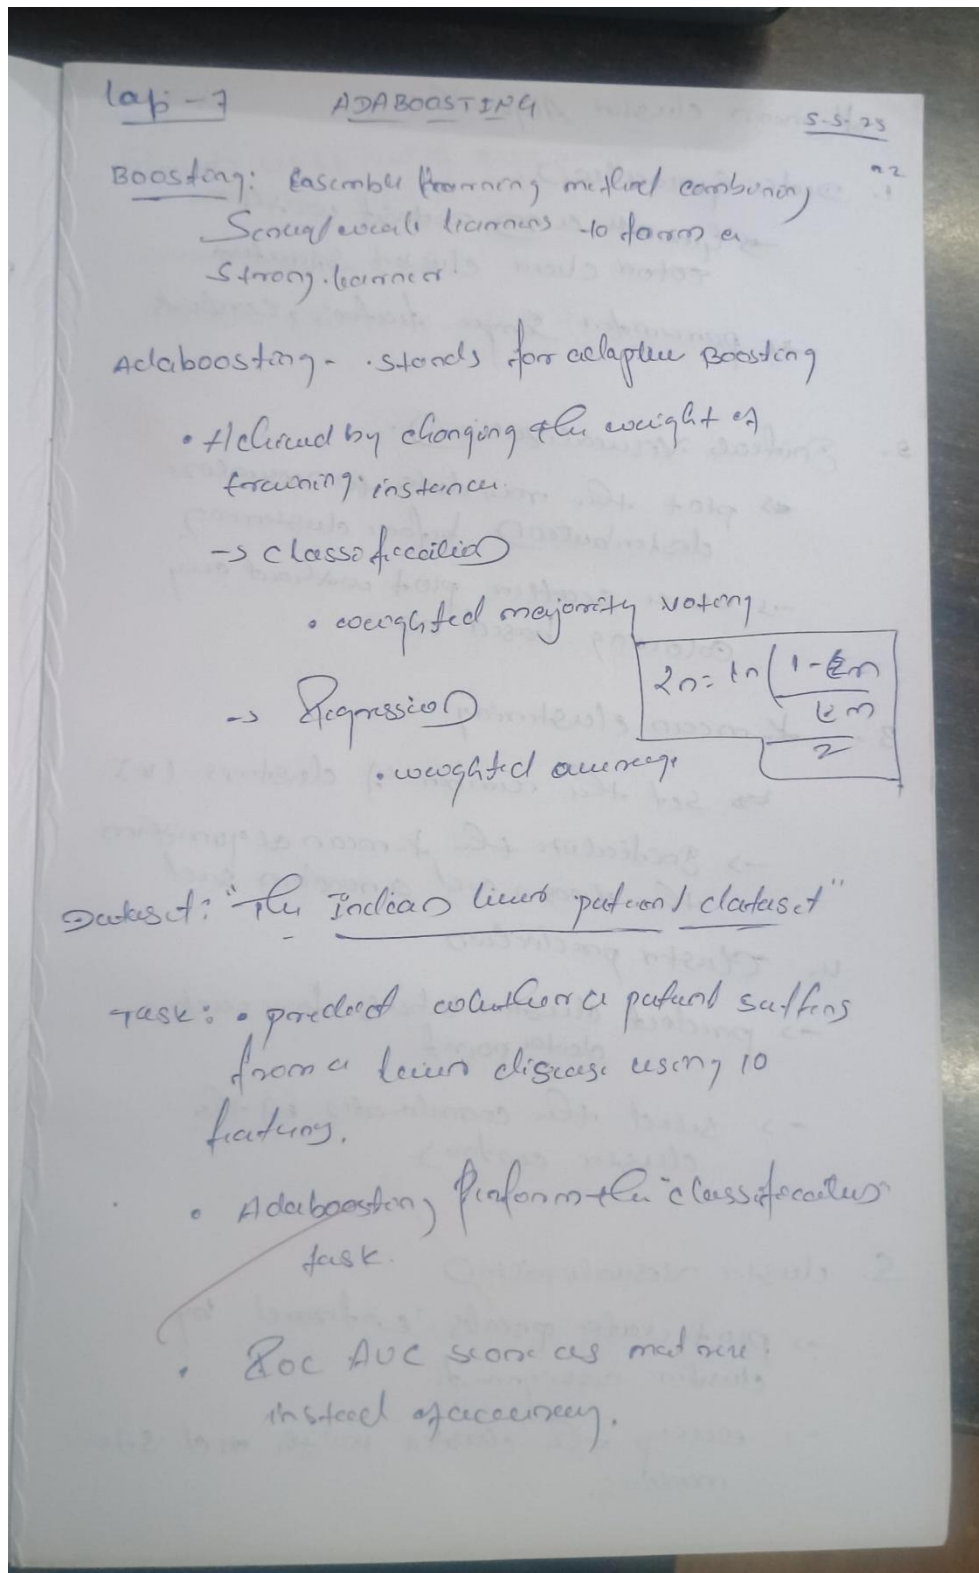 Lab - 7 ADABOOSTING
5-5-25
Boosting: Ensemble learning method combining
Several weak learners to form a
strong learner
Adaboosting - stands for adaptive Boosting
• Achieved by changing the weight of
training instance.
-> classification
• weighted majority voting
-> Regression
• weighted average
Dataset: "The Indian liver patient dataset"
Task: • predict whether a patient suffers
from a liver disease using 10
features.
• Adaboosting perform the classification
task.
• Roc AUC score as metric
instead of accuracy.